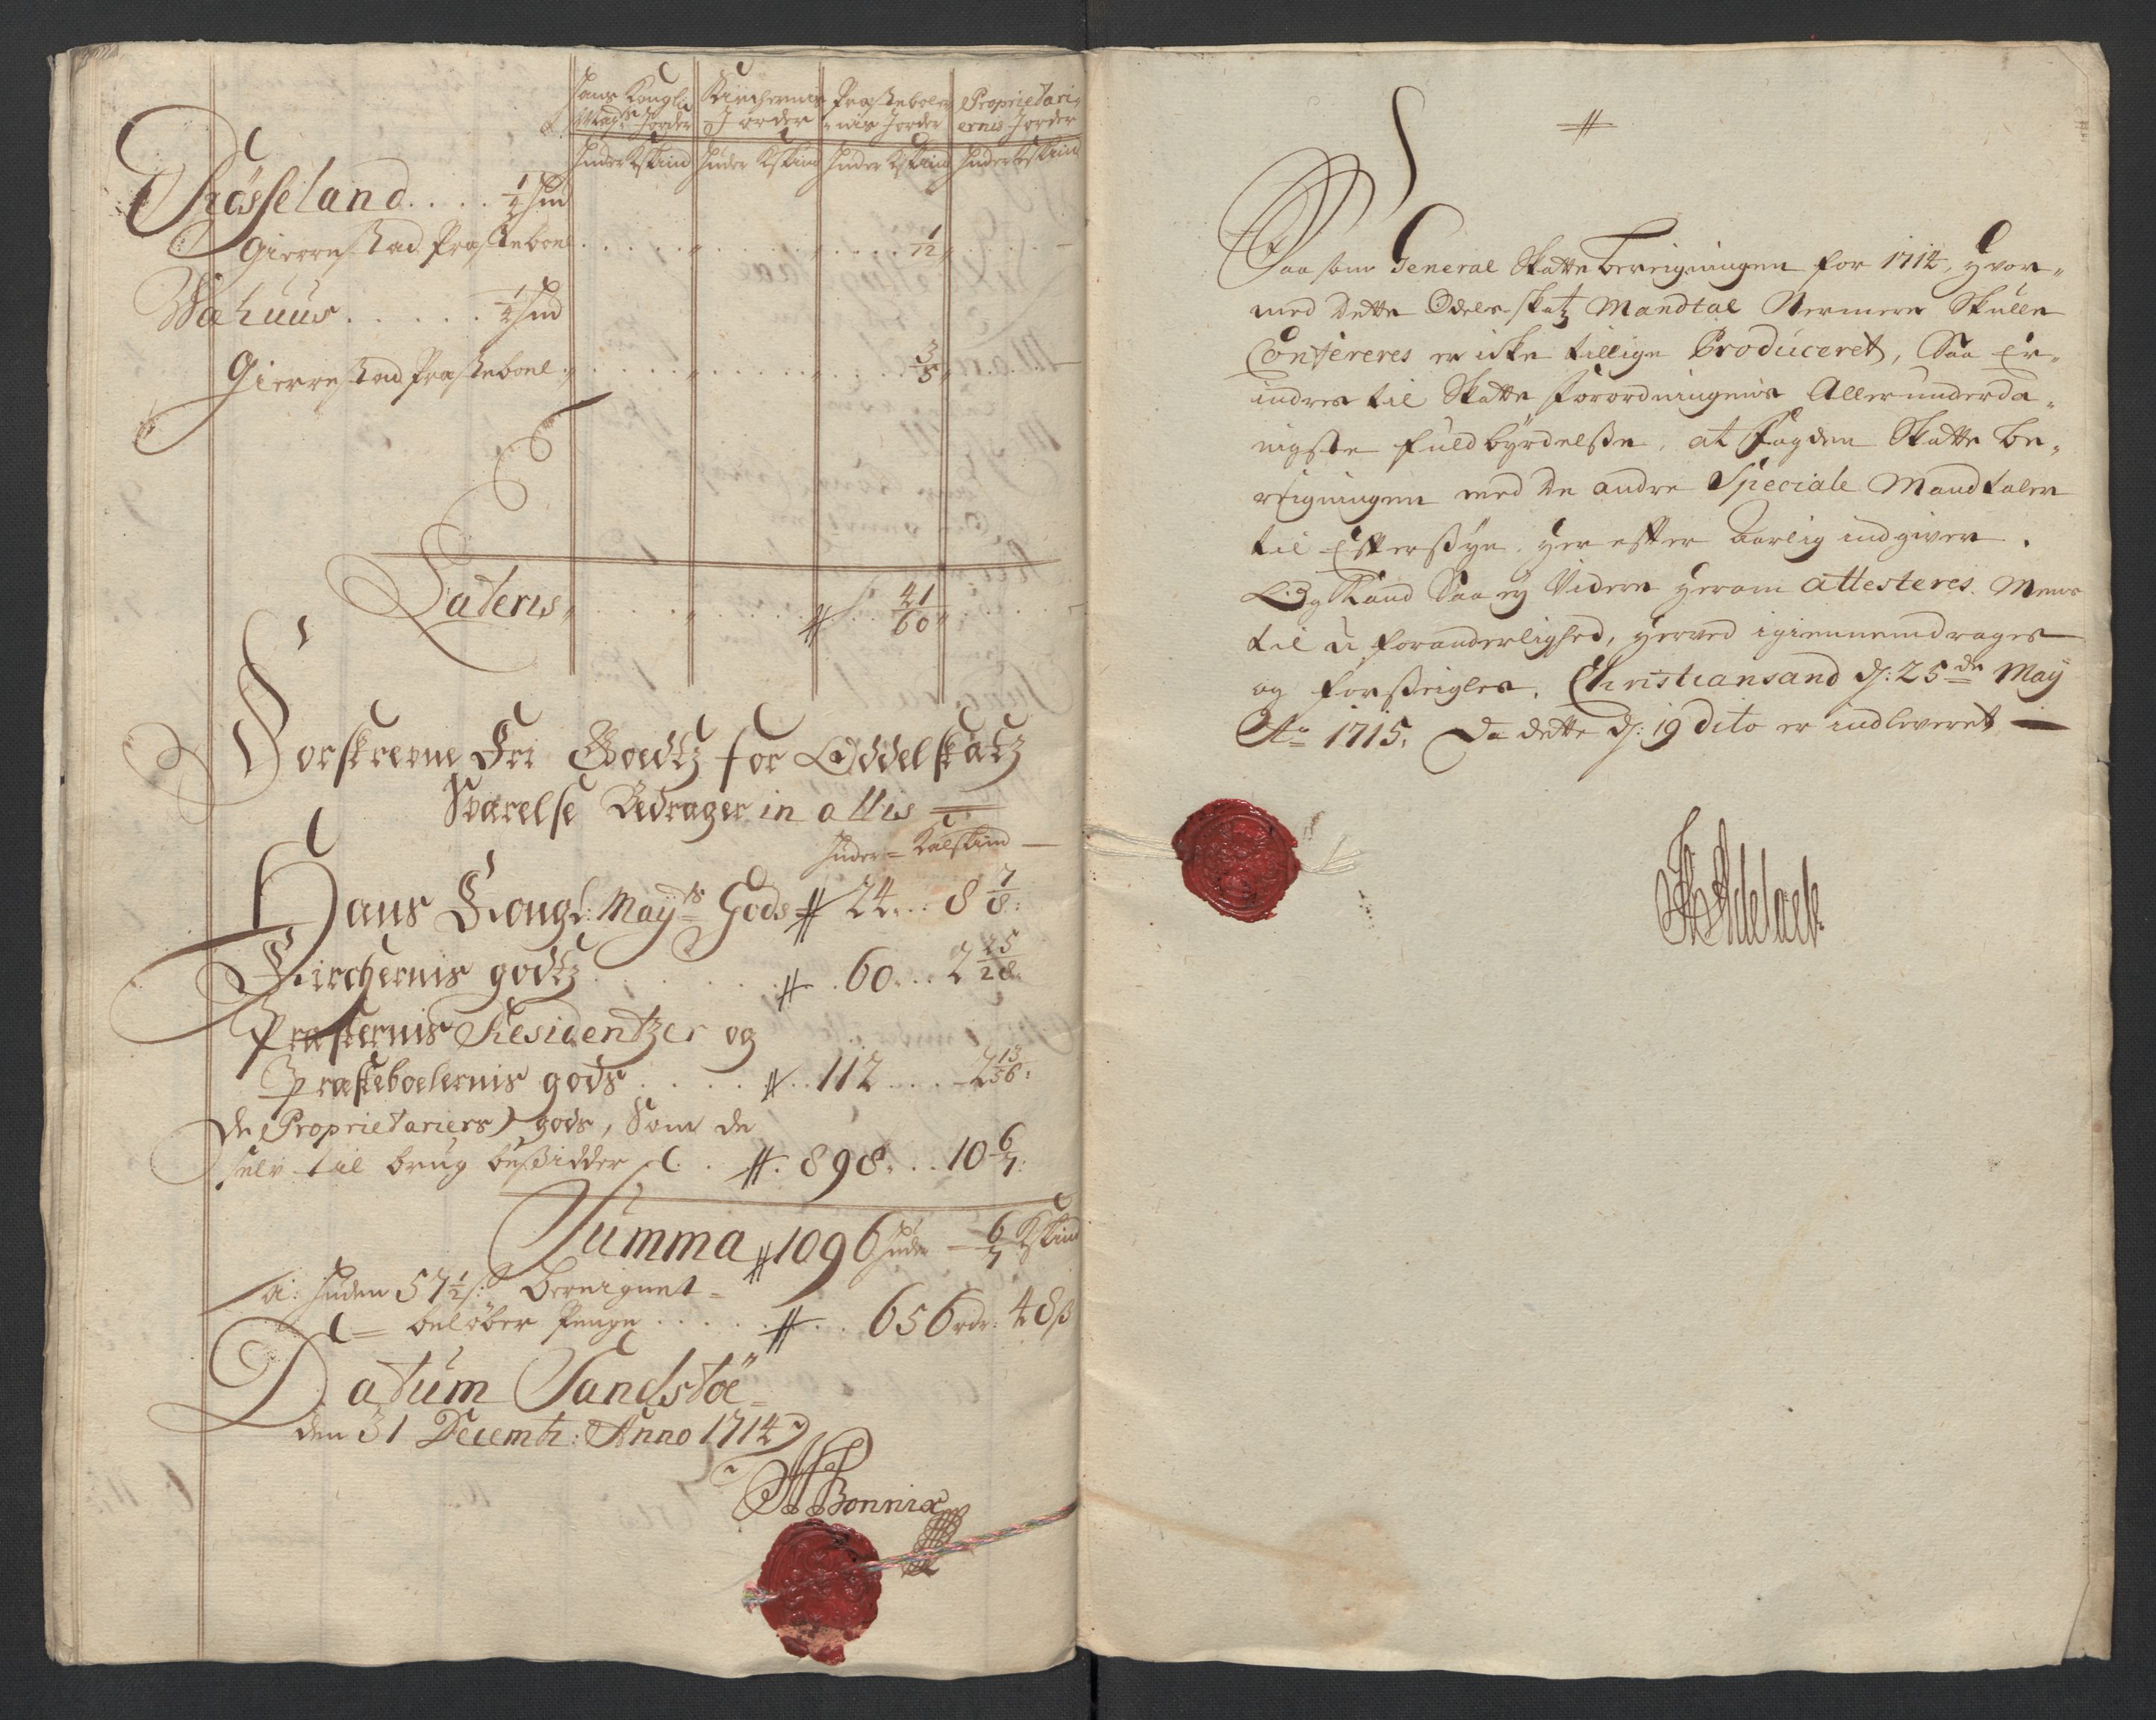 Hans Kongl: Kirchernis Præstebolers Proprietari-
Mayts Jorder Jorder -nis Jorder ernis Jorder
Huder Kskind Huder Kskind Huder Kskind Huder Kskind
Trøsseland . . . . 1/4 Hud
Gierrestad Præsteboel . . . . . " . . . . . " . . . . 1/12 " . . . . —
Wæhuus . . . . . 1/4 Hud
Gierrestad Præsteboel " . . . . . " . . . . . " . . . . 3/5 " . . . . —
Lateris " . . . . . " . . . . . # . . 41/60 " . . . . -
Forskrevne Fri Goedtz for Oddelskatz
Svarelse Bedrager in allis =
Huder = Kalskind —
Hans Kongl: Mayts Gods # 24 . . . 8 7/8:
Kirchernis godtz . . . . . # . 60 . . . 2 25/28:
Præsternis Residentzer og
Præsteboelernis gods . . . . # . . 112 . . . . 2 13/56:
de Proprietariers gods, Som de
selv til brug besidder . . # . 898 . . . 10 6/7:
Summa # 1096 Huder — 6/7 Kskind
a: Huden 57 1/2 s: bereignet =
= beløber Penge . . . . . # . . 656 rdr: 48 s
Datum Sandstöe =
den 31 Decembr: Anno 1714
Bonnix
#
Saa som General Skatte bereigningen for 1714, hvor-
med dette Odels-skatz Mandtal Nermere Skulle
Confereres er icke tillige Produceret, Saa Er-
indres til Skatte forordningens Allerunderda-
nigste fuldbyrdelsse, at Fogden Skatte be-
reigningen med de andre Speciale Mandtaler
til Eftersyn, her efter aarlig indgiver.
Og Kand Saa ey Videre herom attesteres. Mens
til u foranderlighed, herved igiennemdrages
og forseigles. Christiansand d: 25de May
Ao 1715. Da dette d: 19 dito er indleveret —
Adelaer